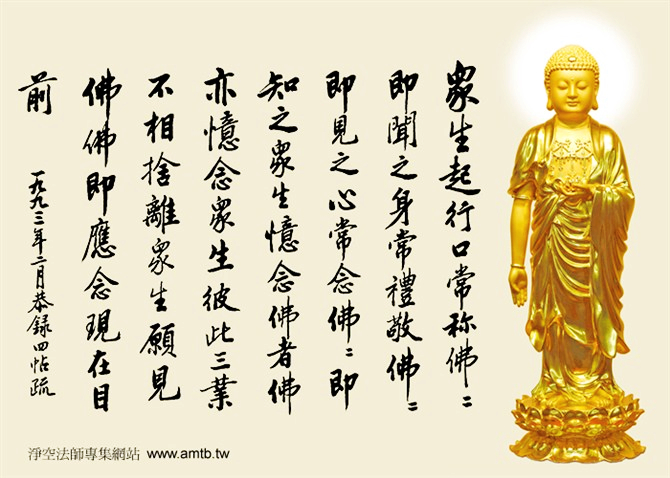 眾生起行口常称佛〻
即聞之身常禮敬佛〻
即見之心常念佛〻即
知之眾生憶念佛者佛
亦憶念眾生彼此三業
不相捨離眾生願見
佛佛即應念現在目
前
一九九三年二月恭錄四帖疏
淨空法師專集網站 www.amtb.tw